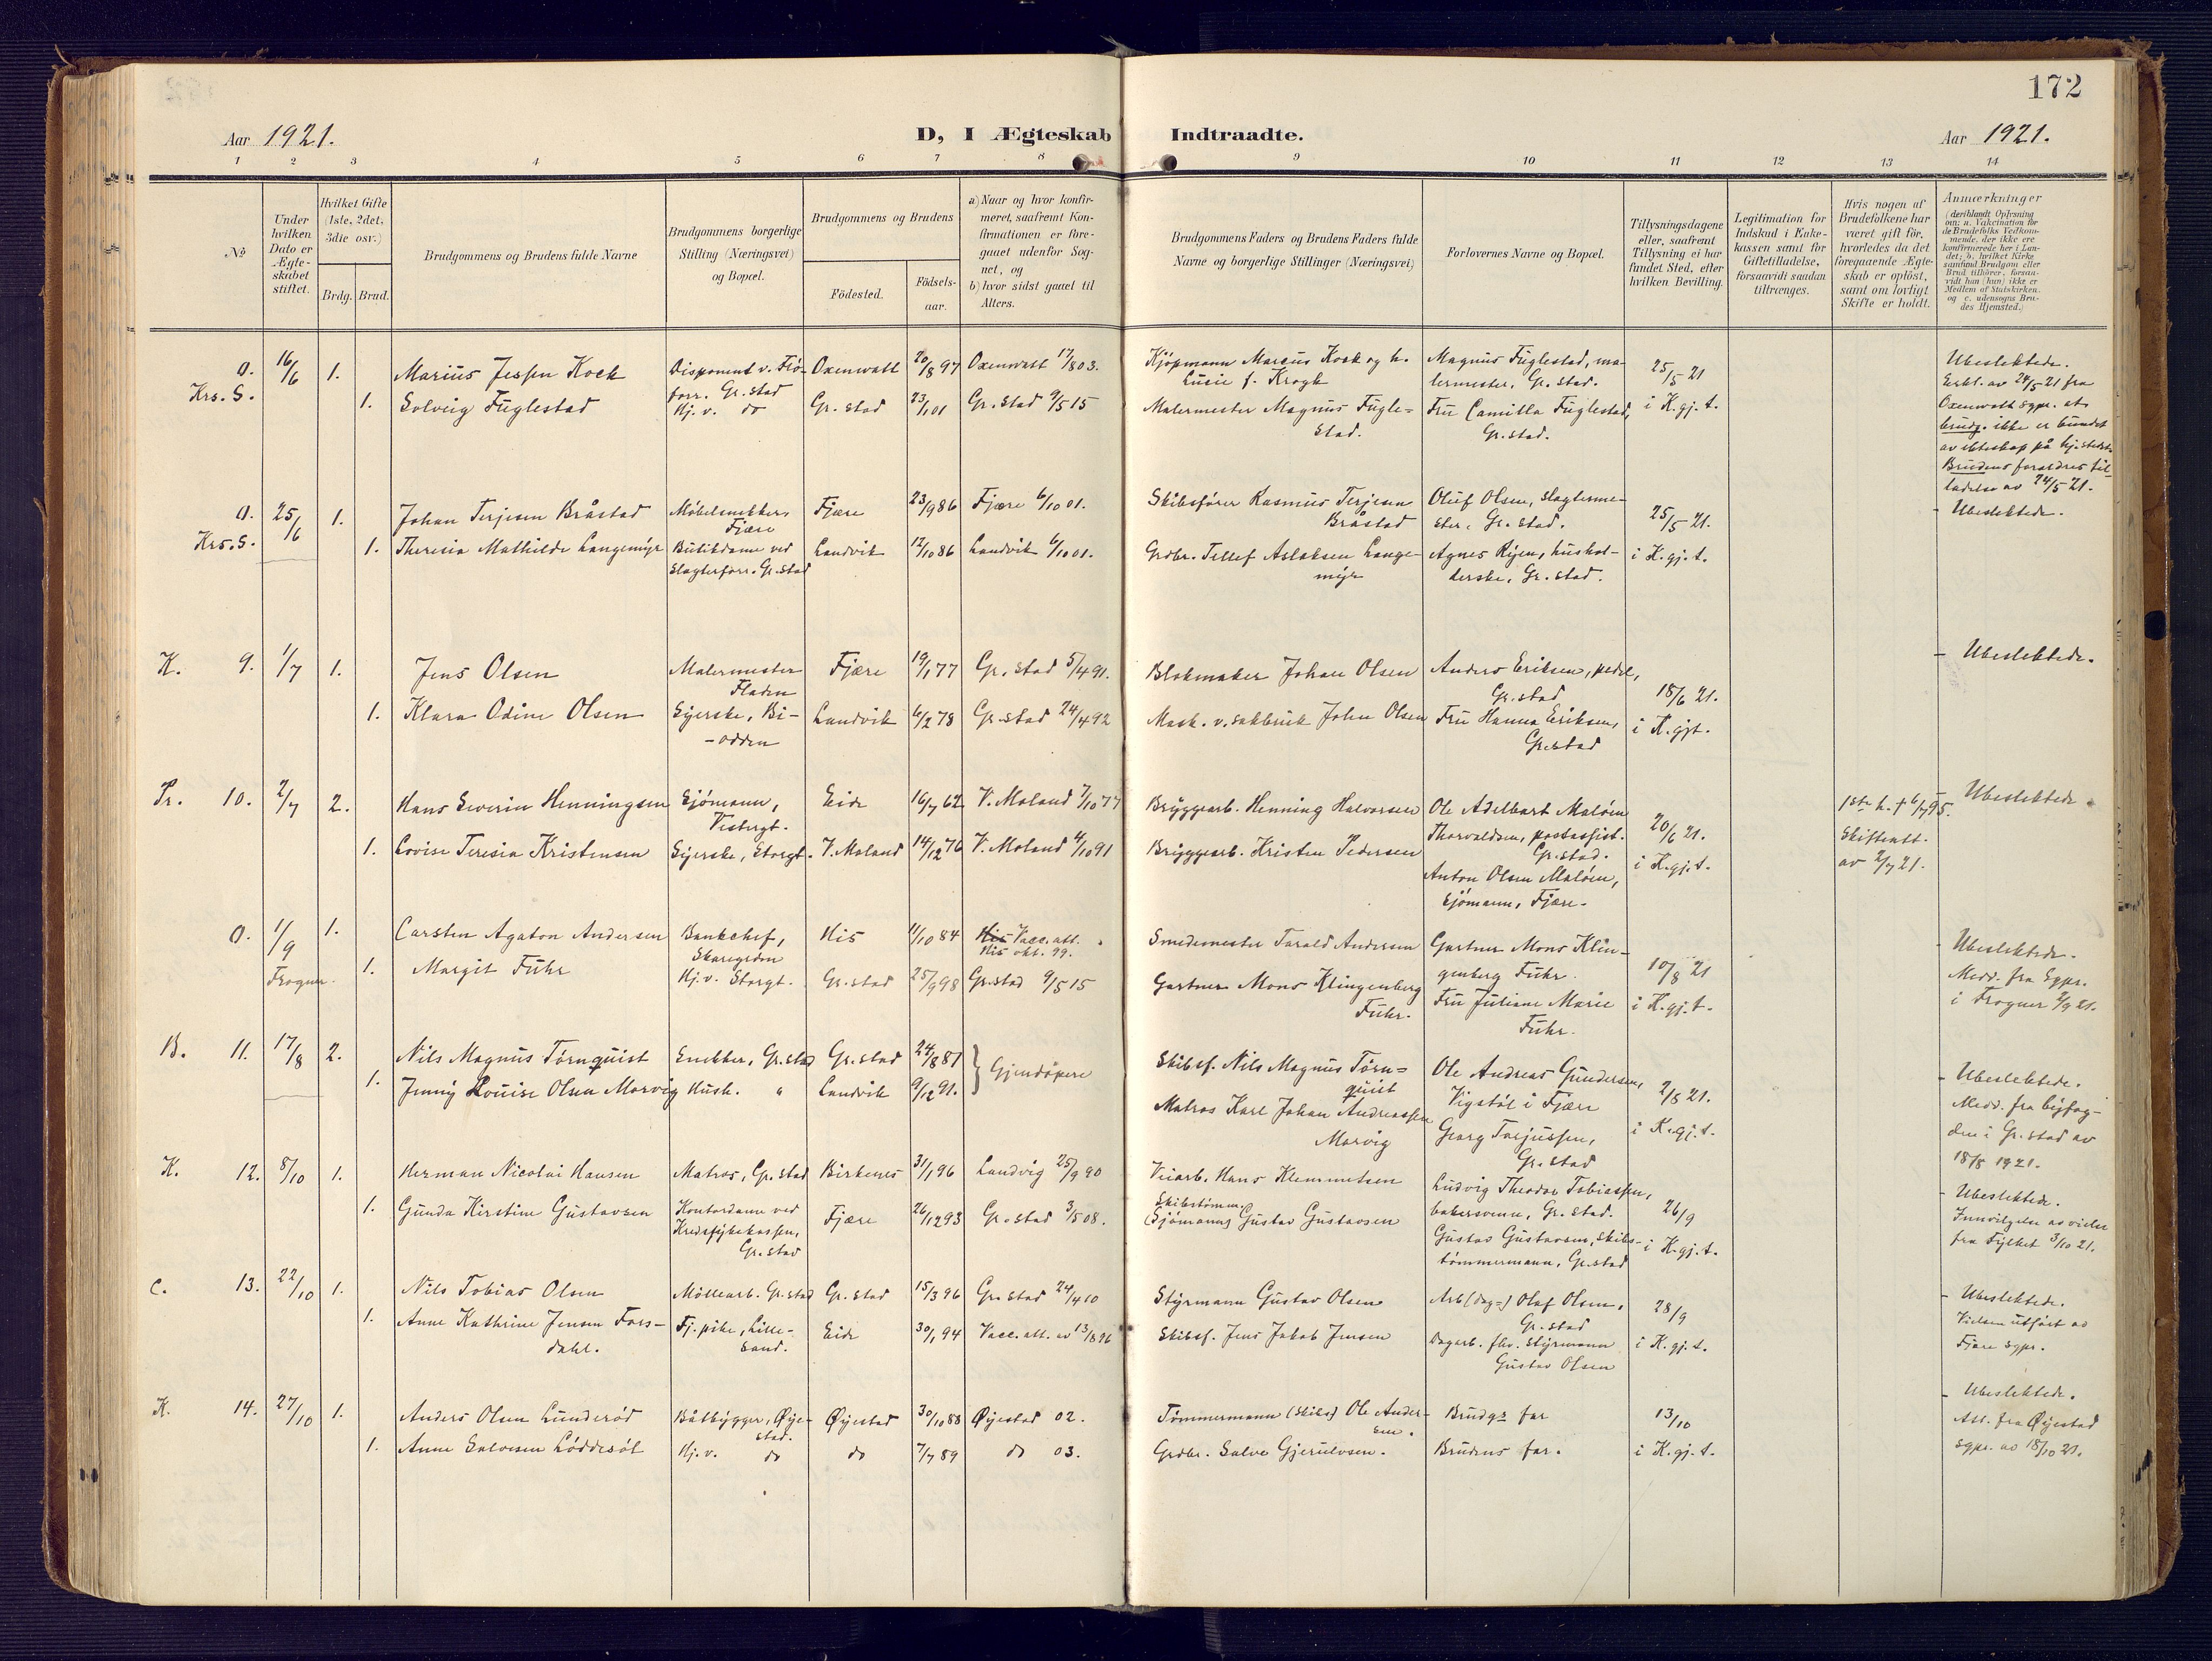 172
Aar 1921.
D, I Ægteskab Indtraadte.
Aar 1921.
1 2 3 4 5 6 7 8 9 10 11 12 13 14
No
Under hvilken Dato er Ægte-skabet stiftet.
Hvilket Gifte (1ste, 2det, 3die osv.)
Brdg. Brud.
Brudgommens og Brudens fulde Navne
Brudgommens borgerlige Stilling (Næringsvei) og Bopæl.
Brudgommens og Brudens
Födested.
Födsels-aar.
a) Naar og hvor konfir-meret, saafremt Kon-firmationen er fore-gaaet udenfor Sog-net, og
b) hvor sidst gaaet til Alters.
Brudgommens Faders og Brudens Faders fulde Navne og borgerlige Stillinger (Næringsvei)
Forlovernes Navne og Bopæl.
Tillysningsdagene eller, saafremt Tillysning ei har fundet Sted, efter hvilken Bevilling.
Legitimation for Indskud i Enke-kassen samt for Giftetilladelse, forsaavidt saadan tiltrænges.
Hvis nogen af Brudefolkene har været gift för, hvorledes da det foregaaende Ægte-skab er oplöst, samt om lovligt Skifte er holdt.
Anmærkninger
(deriblandt Oplysning om: a. Vakcination for de Brudefolks Vedkom-mende, der ikke ere konfirmerede her i Lan-det; b. hvilket Kirke-samfund Brudgom eller Brud tilhörer, forsaa-vidt han (hun) ikke er Medlem af Statskirken. og c. udensogns Bru-des Hjemsted.)
0. 16/6 1. Marius Jessen Kock Disponent v. Flø-forr. Gr.stad Oxenwatt 20/8 97 Oxenwatt 17/8 03. Kjøpmann Marcus Kock og h. Lucie f. Krogh Magnus Fuglestad, ma-lermester, Gr.stad. 25/5 21 Ubeslektede.
Krs. S. 1. Solveig Fuglestad Hj. v. do Gr.stad 23/1 01 Gr.stad 9/5 15 Malermester Magnus Fugle-stad. Fru Camilla Fuglestad, Gr.stad. i K.gj.t. Erkl. av 24/5 21 fra Oxenwatt sgpr. at brudg. ikke er bundet av ekteskap på hj.stedet. Brudens foræ­ldres til-ladelse av 24/5 21.
0. 25/6 1. Johan Terjesen Bråstad Møbelsnekker, Fjære Fjære 23/9 86 Fjære 6/10 01. Skibsfører Rasmus Terjesen Bråstad Oluf Olsen, slagterme-ster, Gr.stad. 25/5 21. - Ubeslektede.
Krs. S. 1. Theresia Mathilde Langemyr Butikdame ved Slagterforr. Gr.stad Landvik 12/10 86 Landvik 6/10 01. Grdbr. Tellef Aslaksen Lange-myr Agnes Rijen, hushol-derske, Gr.stad. i K.gj.t.
K. 9. 1/7 1. Jens Olsen Malermester Fladen Fjære 19/1 77 Gr.stad 5/4 91. Blokmaker Johan Olsen Anders Eriksen, pedel, Gr.stad 18/6 21. - Ubeslektede.
1. Klara Odine Olsen Syerske, Bi-odden Landvik 6/2 78 Gr.stad 24/4 92 Mask. v. sakbruk John Olsen Fru Hanna Eriksen, Gr.stad i K.gjt.
Pr. 10. 2/7 2. Hans Severin Henningsen Sjømann, Vestergt. Eide 16/7 62 V. Moland 7/10 77 Bryggearb. Henning Halvorsen Ole Adelbart Maløen Thorvaldsen, postassist. Gr.stad. 20/6 21. 1ste h. † 6/7 95. Skifteatt. av 2/7 21. Ubeslektede.
1. Lovise Teresia Kristensen Syerske, Storgt. V. Moland 14/12 76 V. Moland 4/10 91 Bryggearb. Kristen Pedersen Anton Olsen Maløen, Sjømann, Fjære. i K.gj.t.
0. 1/9 1. Carsten Agaton Andersen Bankchef, Skaregrøm His 11/10 84 His Vacc. att. His okt. 99. Smedemester Tarald Andersen Gartner Mons Klin-genberg Fuhr. 10/8 21 - Ubeslektede.
Frogner. 1. Margit Fuhr Hj. v. Storgt. Gr.stad 25/9 98 Gr.stad 9/5 15 Gartner Mons Klingenberg Fuhr. Fru Juliane Marie Fuhr. i K.gj.t. Medd. fra Sgpr. i Frogner 2/9 21.
B. 11. 17/8 2. Nils Magnus Tørnquist Snekker, Gr.stad Gr.stad 24/8 81 } Gjendøpere Skibsf. Nils Magnus Tørn-quist Ole Andreas Gundersen, Vigstøl i Fjære 2/8 21. - Ubeslektede.
1. Jenny Louise Olsen Morvig Hush. " Landvik 9/12 91. Matros Karl Johan Andreassen Morvig Georg Tarjussen, Gr.stad i K.gj.t. Medd. fra byfog-den i Gr.stad av 18/8 1921.
K. 12. 8/10 1. Herman Nicolai Hansen Matros, Gr.stad Birkenes 31/1 96 Landvig 25/9 90 Veiarb. Hans Klemmetsen Ludvig Theodor Tobiassen, bakersvenn, Gr.stad. 26/9 - Ubeslektede.
1. Gunda Kirstine Gustavsen Kontordame ved Kredssykekassen, Gr.stad Fjære 26/12 93 Gr.stad 3/5 08. Skibstømm. (Sjømann) Gustav Gustavsen Gustav Gustavsen, skibs-tømmermann, Gr.stad i K.gj.t. Innvilgelse av vielse fra Fylket 3/10 21.
C. 13. 22/10 1. Nils Tobias Olsen Møllearb. Gr.stad Gr.stad 15/3 96 Gr.stad 24/4 10 Styrmann Gustav Olsen Arb (dag=) Olaf Olsen, Gr.stad 28/9 - Ubeslektede.
1. Anne Kathrine Jensen Fors-dahl. Tj.pike, Lille-sand. Eide 30/1 94 Vacc. att. av 13/8 96 Skibsf. Jens Jakob Jensen Dagarb. fhv. styrmann Gustav Olsen i K.gj.t. Vielsen utført av Fjære sgpr.
K. 14. 27/10 1. Anders Olsen Lunderød Båtbygger, Øye-stad. Øyestad 30/10 88 Øyestad 02. Tømmermann (Skibs) Ole Ander-sen. Brudgs far 13/10 - Ubeslektede.
1. Anne Salvesen Løddesøl Hj. v. do do 7/7 89 do 03. Grdbr. Salve Gjerulvsen. Brudens far. i K.gj.t. Att. fra Øyestad sgpr. av 18/10 21.